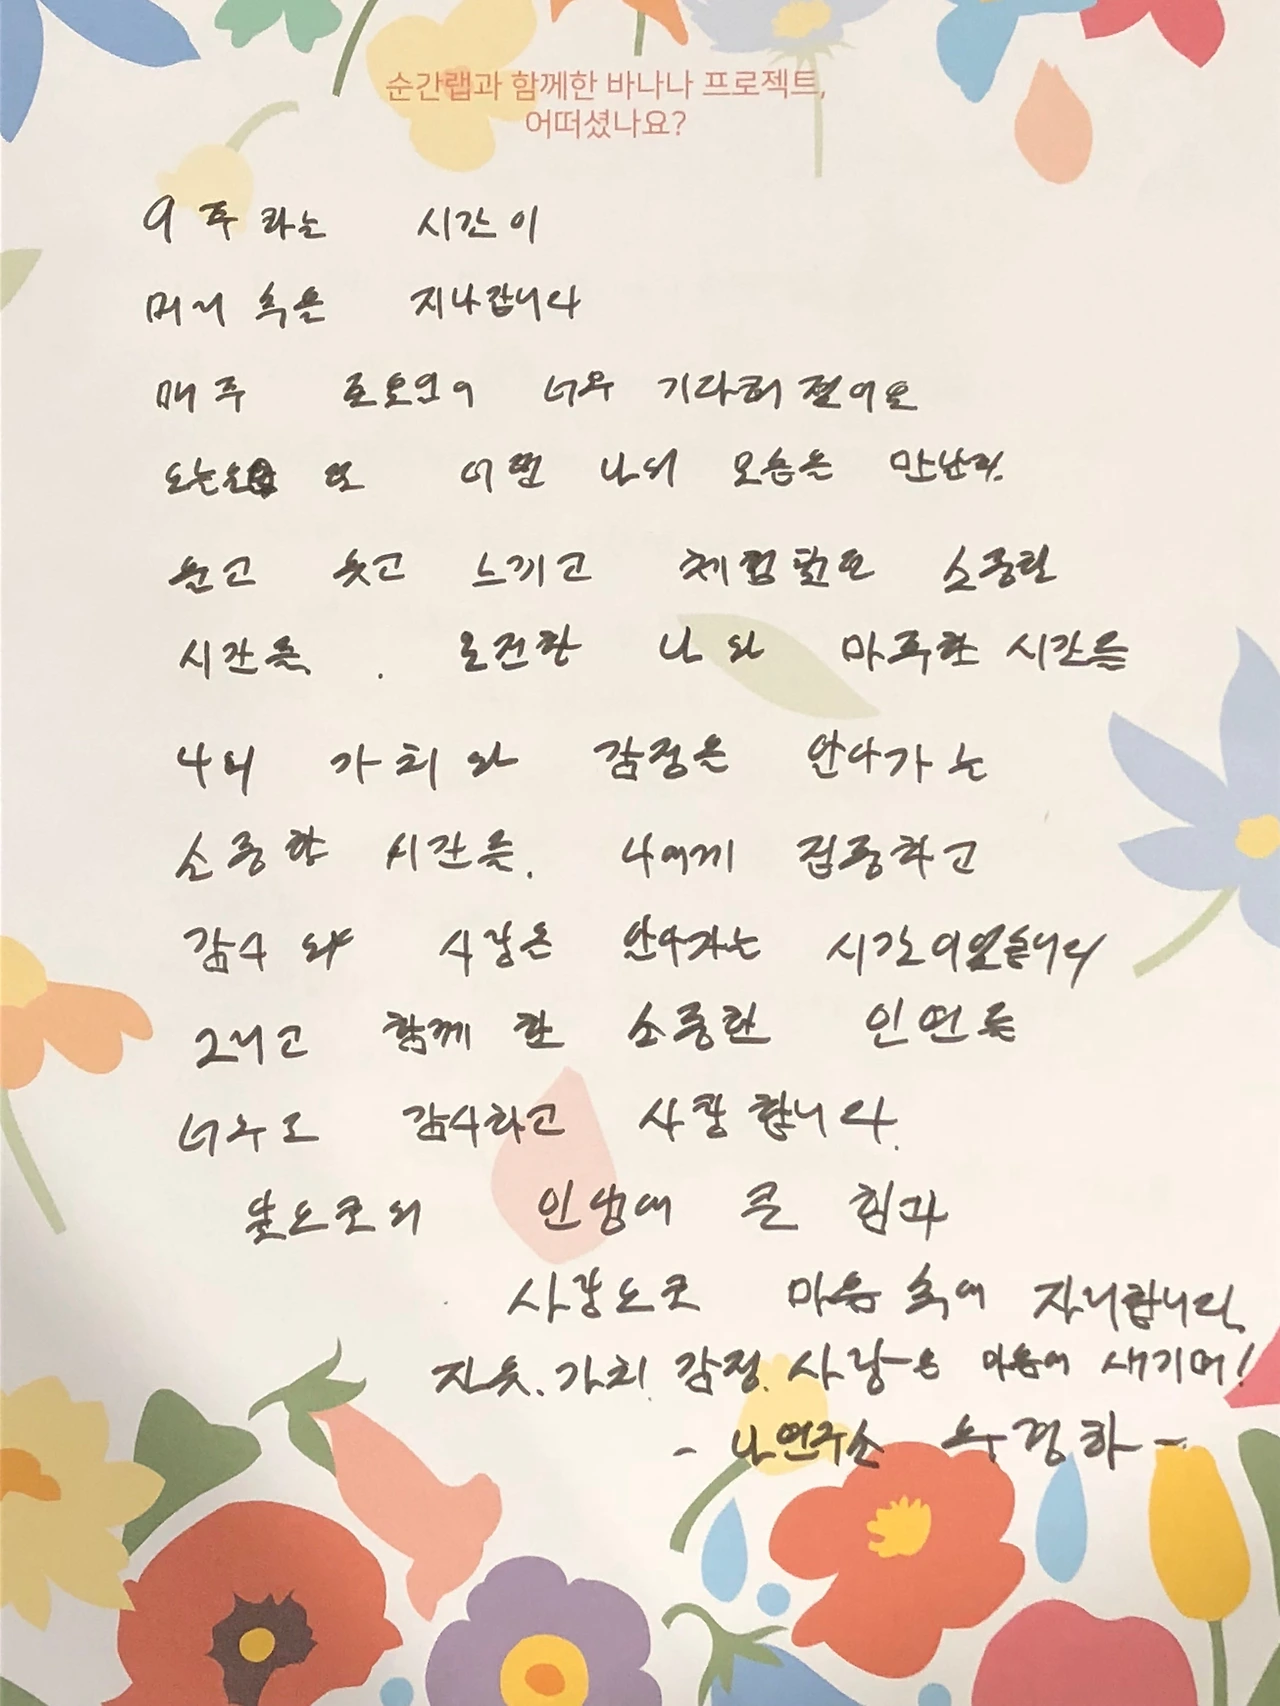 순간랩과 함께한 바나나 프로젝트,
어떠셨나요?
9주라는 시간이
머리 속을 지나갑니다
매주 토요일이 너무 기다려졌어요
오늘은 또 어떤 나의 모습을 만날까.
울고 웃고 느끼고 체험했던 소중한
시간을. 온전한 나와 마주한 시간을
나의 가치와 감정을 안아가는
소중한 시간을. 나에게 집중하고
감사와 사랑을 안아가는 시간이었습니다
그리고 함께 한 소중한 인연을
너무도 감사하고 사랑합니다.
앞으로의 인생에 큰 힘과
사랑으로 마음 속에 자리합니다.
진옷. 가치. 감정. 사랑을 마음에 새기며!
- 나연구소 경하 -